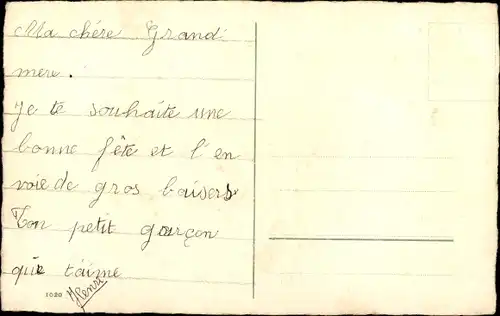 Ma chére Grand
mere.
Je te souhaite une
bonne fête et l'en
voie de gros baisers
Ton petit garçon
qui t'aime
Henri
1020